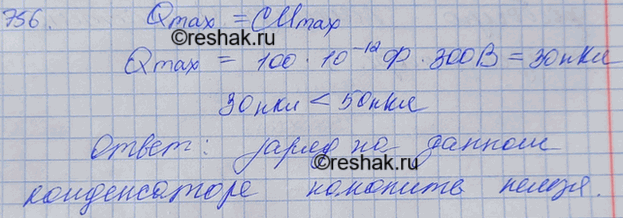 756. Qmax = CUmax
©reshak.ru
Qmax = 100 · 10⁻¹² ф · 300В = 30нкл
30нкл < 50нкл
©reshak.ru
Ответ: заряд на данном
конденсаторе накопить нельзя.